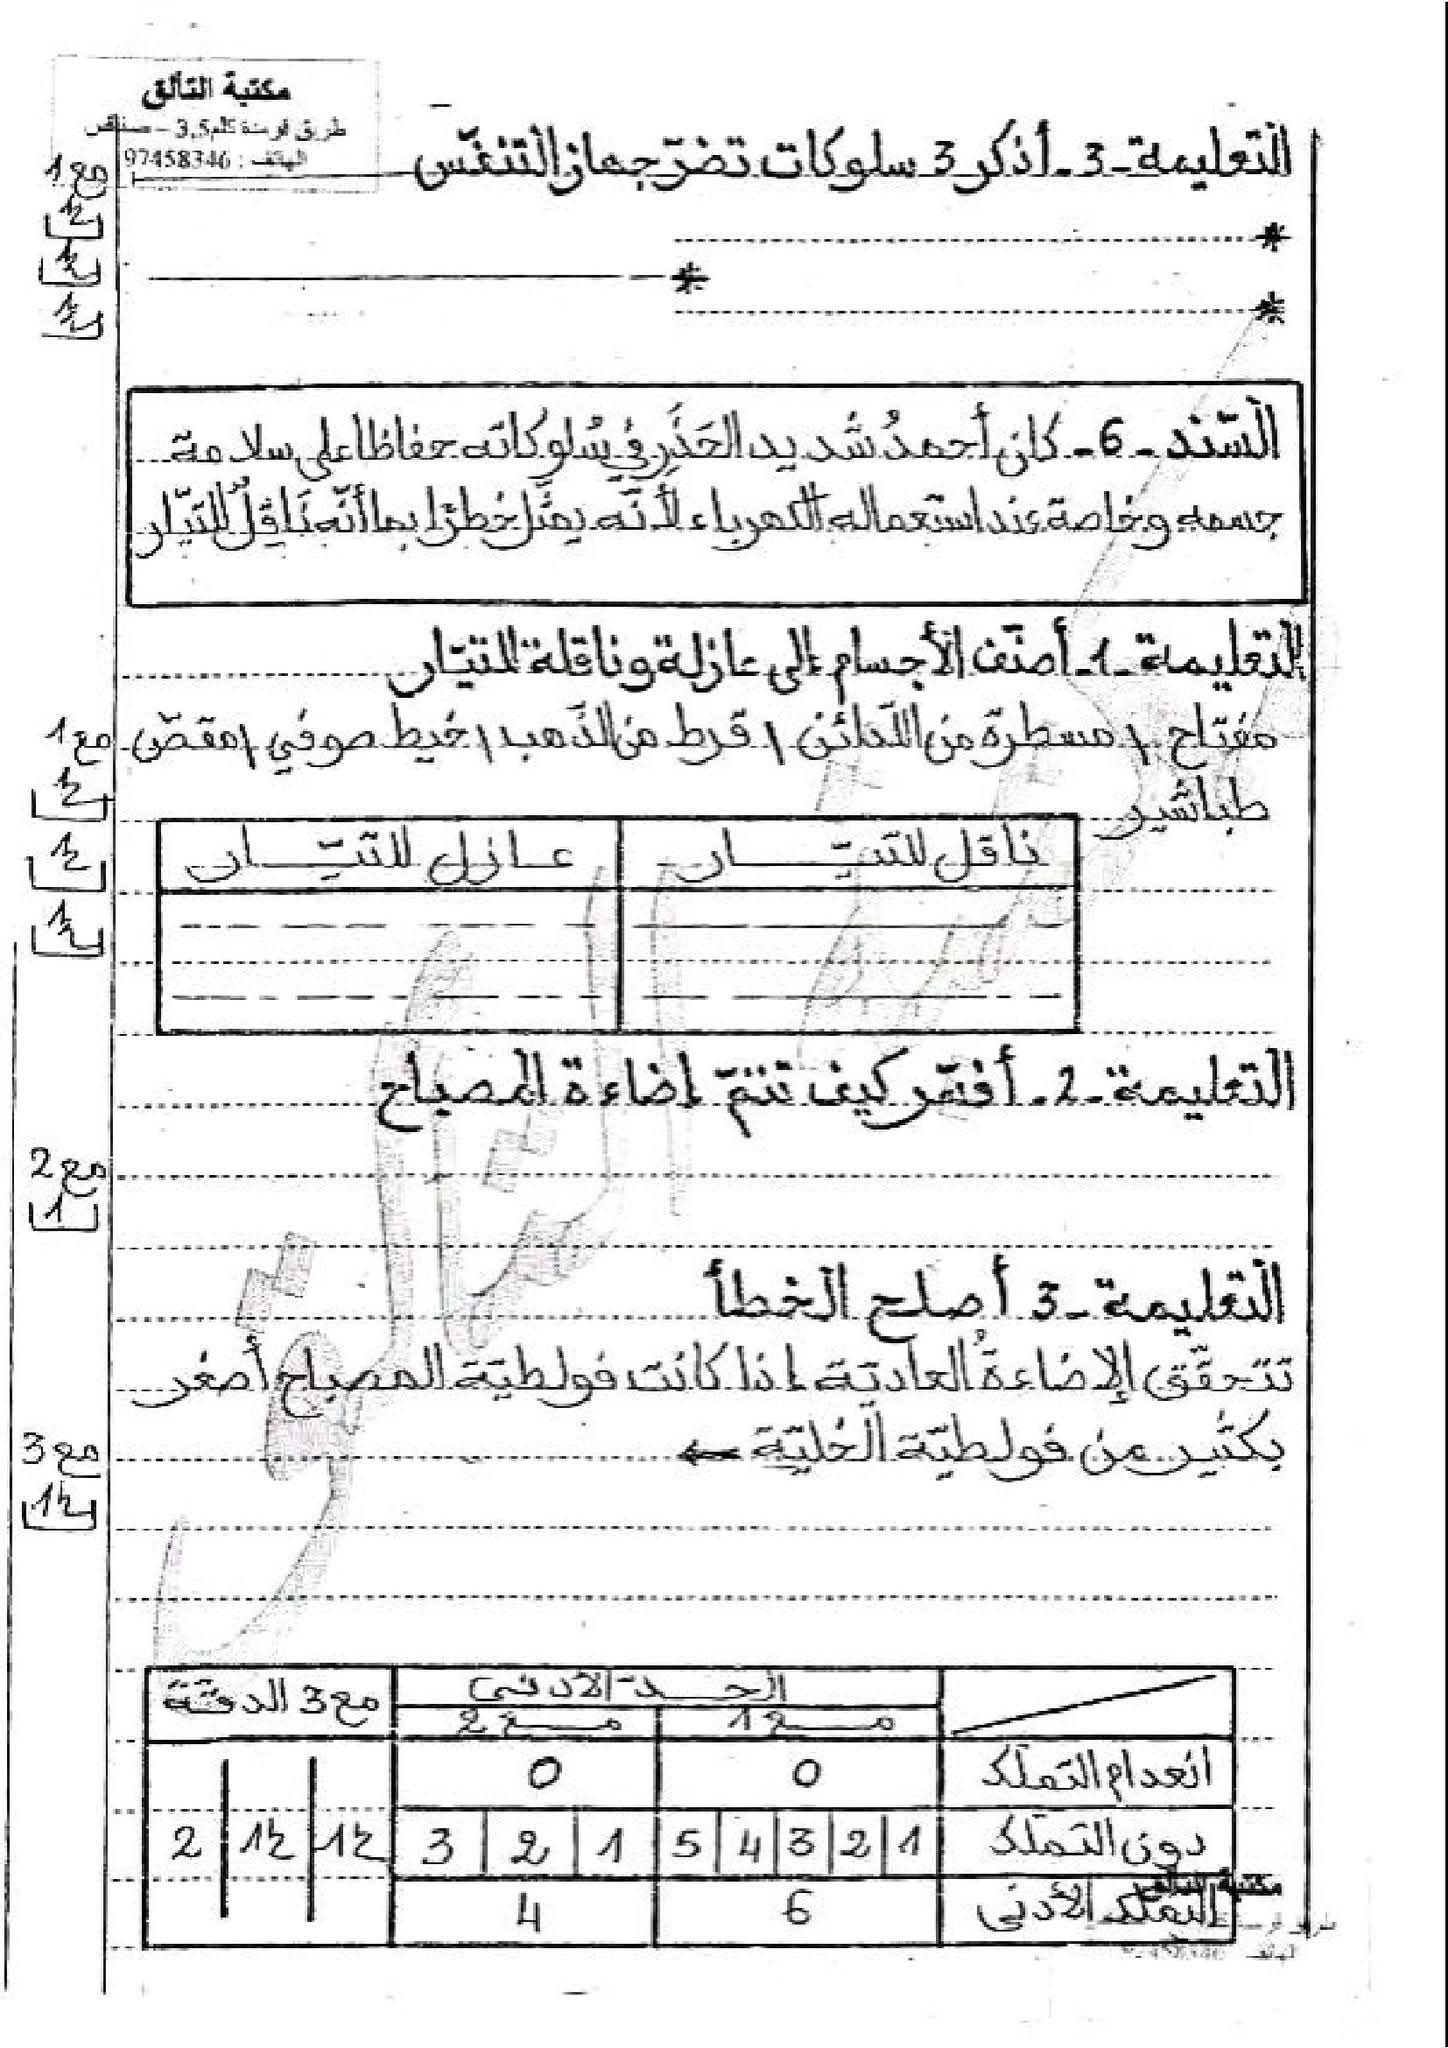 مكتبة التألق
طريق قرمدة كلم3,5 - صفاقس
الهاتف : 97458346
التعليمة -3- أذكر 3 سلوكات تضرّ جهاز التنفّس
مع1
*
*
*
السّند - 6 - كان أحمدُ شديد الحَذَرِ في سُلوكاته حفاظا على سلامة
جسمه وخاصة عند استعماله الكهرباء لأنّه يمثّل خطرًا بما أنّه نَاقِلٌ للتيّار
التعليمة -1- أصنّف الأجسام إلى عازلة وناقلة للتيّار
مفتاح \ مسطرة من اللّدائن \ قرط من الذّهب \ خيط صوفي \ مقصّ
مع1
طباشير
ناقل للتيّار
عازل للتيّار
التعليمة -2- أفسّر كيف تتمّ إضاءة المصباح
مع2
1
التعليمة -3 أصلح الخطأ
تتحقّق الإضاءةُ العاديّة إذا كانت فولطيّة المصباح أصغر
بكثير من فولطيّة الخليّة ←
مع3
1½
الحد الأدنى
مع3 الدقّة
مع1
مع2
انعدام التملّك
0
0
دون التملّك
1 2 3 4 5
1 2 3
1½ 1½ 2
التملّك الأدنى
6
4
مكتبة التألق